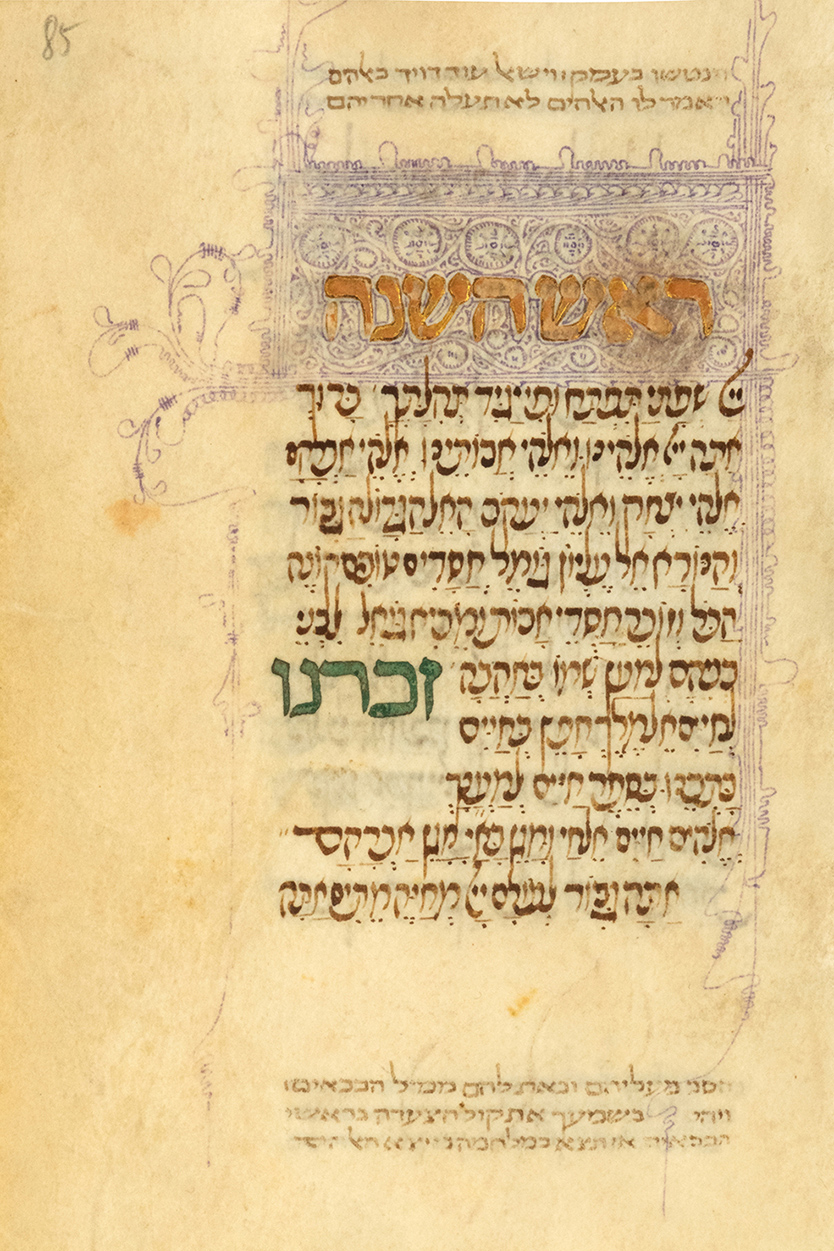 85
וינטשו בעמק וישאל עוד דויד באלהים
ויאמר לו האלהים לא תעלה אחריהם
ראש השנה
יי שפתי תפתח ופי יגיד תהלתך ברוך
אתה יי אלהינו ואלהי אבותינו אלהי אברהם
אלהי יצחק ואלהי יעקב האל הגדול הגבור
והנורא אל עליון גומל חסדים טובים קונה
הכל וזוכר חסדי אבות ומביא גואל לבני
בניהם למען שמו באהבה זכרנו
לחיים אל מלך חפץ בחיים
כתבנו בספר חיים למענך
אלהים חיים אל חי ומגן באי מגן
אתה גבור לעולם יי מחיה מתים אתה
הסב מעליהם ובאת להם ממול הבכאים
ויהי כשמעך את קול הצעדה בראשי
הבכאים אז תצא במלחמה כי יצא